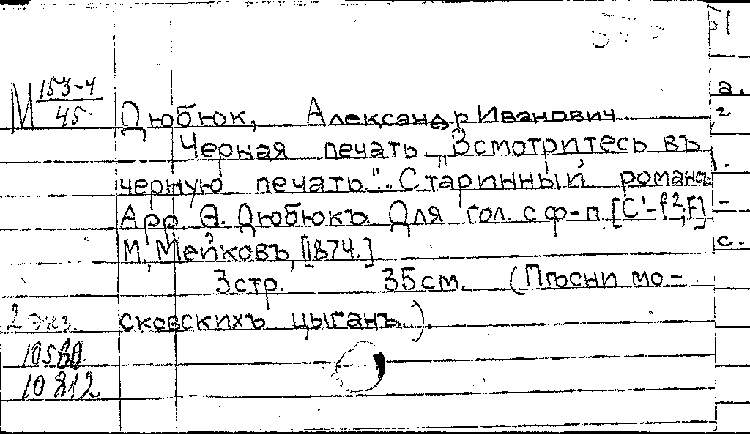 М 153-4/45
Дюбюк, Александр Иванович
Черная печать „Всмотритесь въ
черную печать". Старинный романс.
Арр. А. Дюбюкъ. Для гол. с ф-п. [С¹-f²; F]
М., Мейковъ, [1874.]
3 стр. 35 см. (Пѣсни мо-
2 экз. сковскихъ цыганъ.).
10580
10812
а.
с.